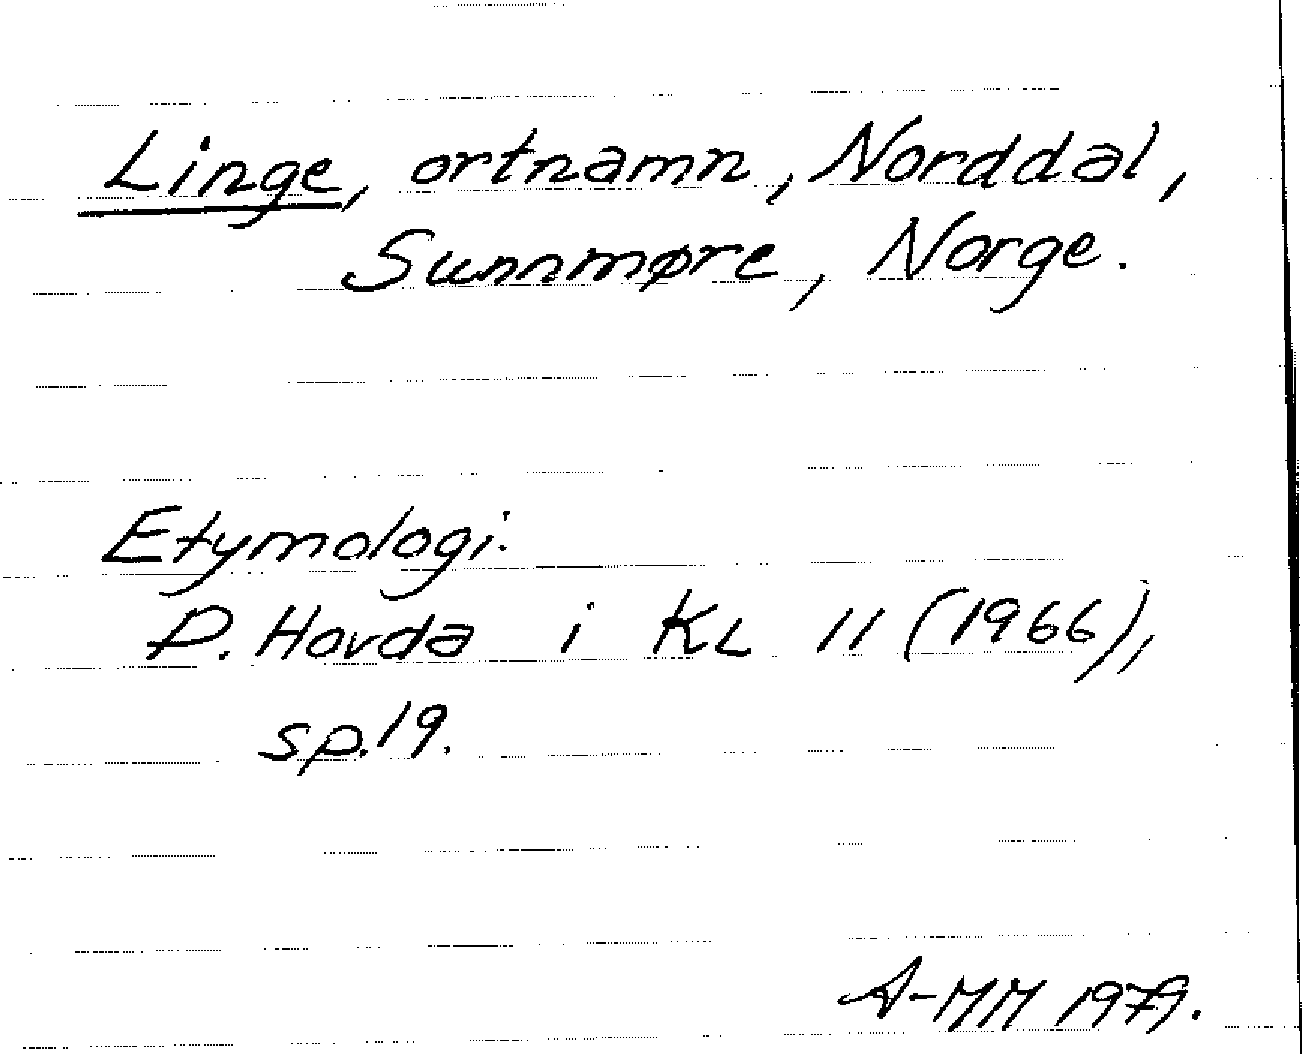 Linge, ortnamn, Norddal,
Sunnmøre, Norge.
Etymologi:
P. Hovda i KL 11 (1966),
sp. 19.
A-MM 1979.